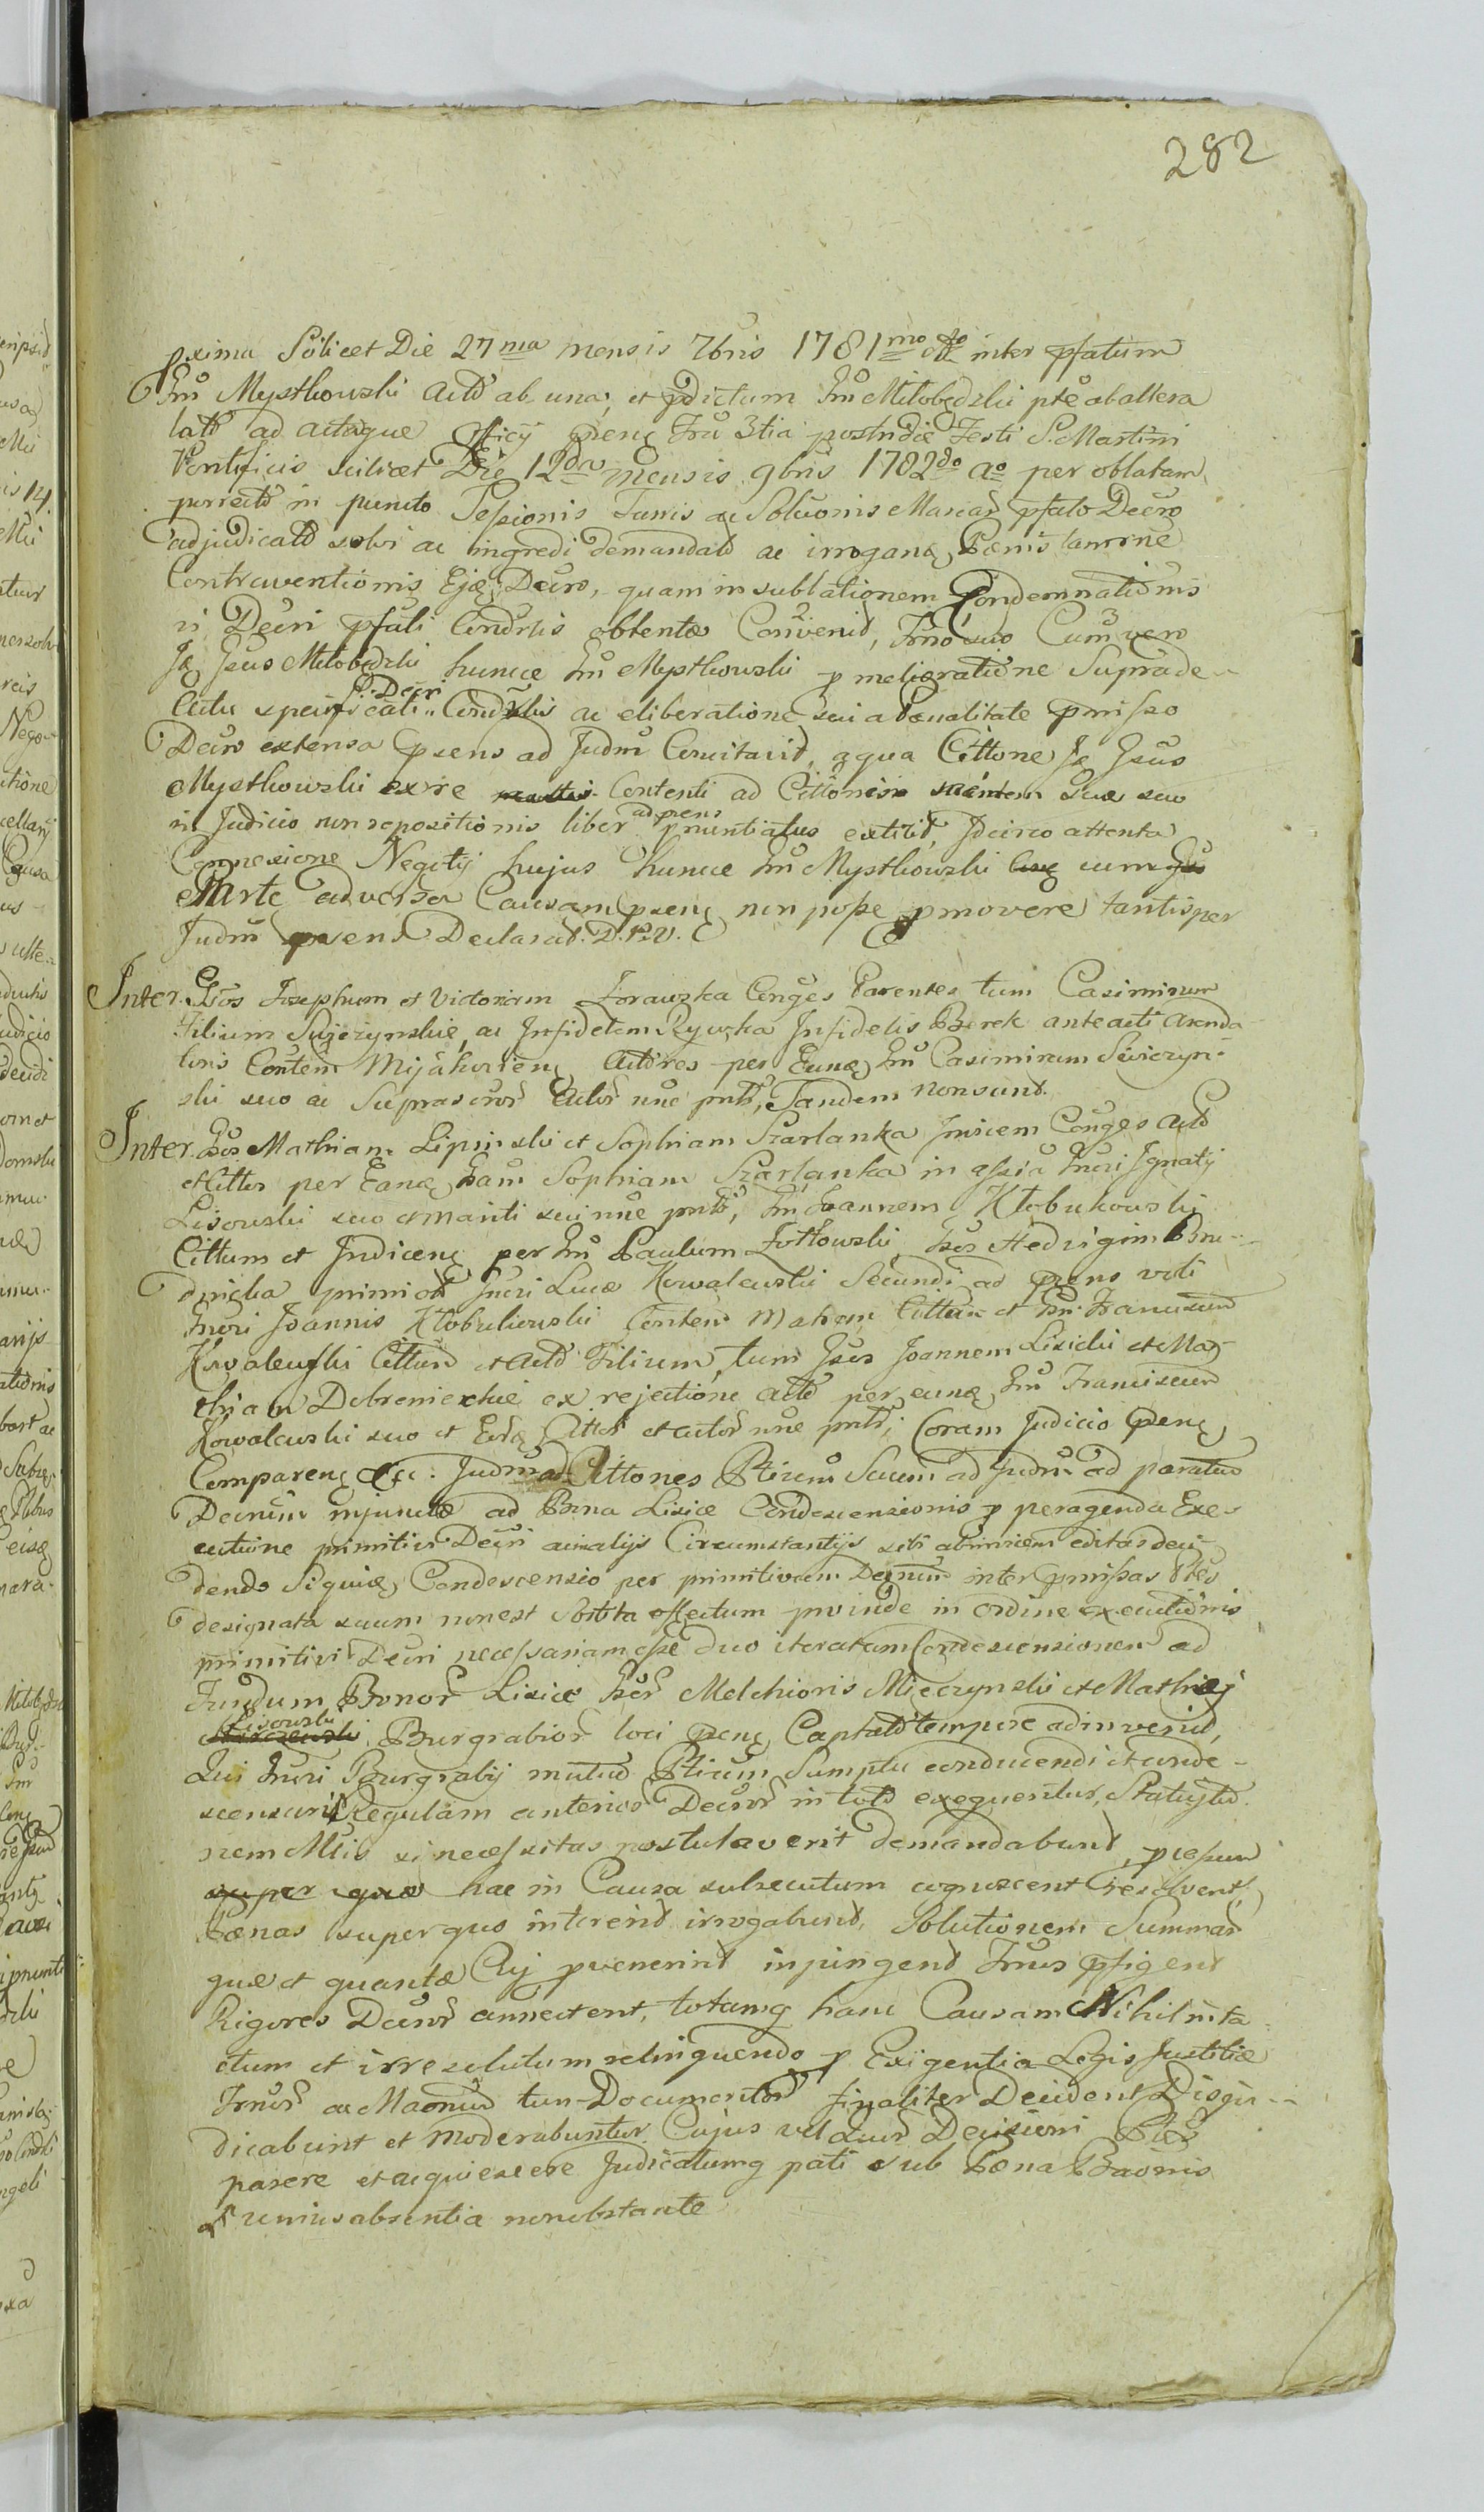 282
pxima Scilicet Die 27ma mensis 7bris 1781mo Ao inter pfatum
Gm Mystkowski Actd ab una, et pdictum Gm Miłobędzki pte ab altera
latd ad actaque Officij pens Trii 3tia postridie Festi S. Martini
Pontificis scilicet Die 12da mensis 9bris 1782do ao per oblatam
porrectd in puncto Sessionis Turris ac Soluonis Marcar pfato Decro
adjudicatd solvi ac ingredi demandatd ac irrogans Pænis tam rne
Contraventionis Ejq Decro, quam in sublationem Condemnationis
vi Decri pfati Condtis obtentæ Convenid, Trno suo Cum vero
Jq Gsus Miłobędzki huncce Gm Mystkowski p melioratione Suprade
P. Decr.
Actu specificati Condtis ac eliberatione sui a Pænalitate pmisso
Decro extensa psens ad Judm Concitavit, a qua Cittone Jq Gsus
Mystkowski ex re Contenti ad Cittonis mentem suæ suo
ad psens
in Judicio non repositionis liber pnuntiatus extitid, Idcirco attenta
Connexione Negotij hujus hunce Gm Mystkowski cum
Parte adversa Causam psens non posse pmovere tantisper
Judm psens Declarat. D.P.V.
Inter Gsos Josephum et Victoriam Zorawska Conges Parentes tum Casimirum
Filium Swięzynskie, ac Infidelem Rywka Infidelis Berek anteacti Arenda
toris Conten Mijakoriens Actores per Eunq Gm Casimirum Swięzyn
ski suo ac Suprascror Actor nne pntr, Tandem non sunt.
Inter Gsos Mathiam Lipinski et Sophiam Szarlanka Invicem Conges Actd
et Cittos per Eanq Gsam Sophiam Szarlanka in assia Gnrsi Ignatij
Lisowski suo et mariti sui nne pntr, Gm Joannem Kłobukowski
Cittum et Indicens per Gm Paulum Zołtowski, Gsos Hedvigim Bru
dnicka primi olt Gnrsi Lucæ Kowalewski Secundi ad psens voti
Gnrsi Joannis Kłobukowski Conten Matrem Cittam et Gm Franciscum
Kowalewski Cittum et Actd Filium, tum Gsos Joannem Lisicki et Mat
thiam Dobrenieckie ex rejectione Actd per eunq Gm Franciscum
Kowalewski suo et Eorq Cittor et actor nne pntr, Coram Judicio psens
Comparens &c. Judm ad Cittones Ptium Secum ad Judm ad paratas
Decrum injunctæ ad Bona Lisice Condescensionis p peragenda Exe
cutione primitivi Decri acinalijs Circumstantijs sibi abinvicem editas deci
dendo Siquidq Condescensio per primitivum Decrum inter pmissas Ptes
designata suum non est Sortita effectum proinde in ordine executionis
primitivi Decri necessariam esse duo iteratam Condescensionem ad
Fundum Bonor Lisice Gsor Melchioris Mięczynski et Mathiæj
Lisowski
Burgrabior loci psens Captatd tempore adinvenid,
Qui Gnrsi Burgrabij mutuo Ptium Sumptu conducendi et conde
scensuri Regulam anterior Decror in totd exequentur, Statuitio
nem Mtis si necessitas postulaverit demandabunt, processum
hac in Causa subsecutum cognoscent resolvent,
Pænas super quo intererid irrogabund, Solutionem Summar
quæ et quantæ Cuj provenerint injungend Trnos pfigent
Rigores Decror annectent, totamq hanc Causam Nihil inta
ctum et irresolutum relinquendo p Exigentia Legis Justitiæ
Trnor ac Maonum tum Documentor finaliter Decident Disju
dicabunt et moderabuntur Cujus vel Quor Decisioni Ptes
parere et acquiescere Judicatumq pati sub Pæna Baonis
unius absentia non obstante